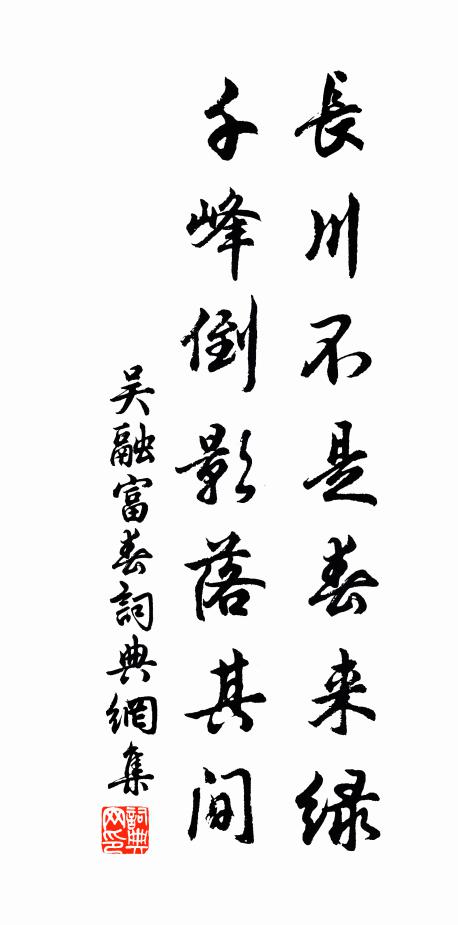 長川不是春来緑
千峰倒影落其間
吴融富春詞典網集
詞典網印